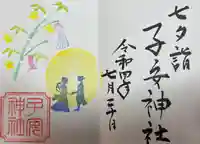 七夕詣
子安神社
令和四年
七月
子安
神社